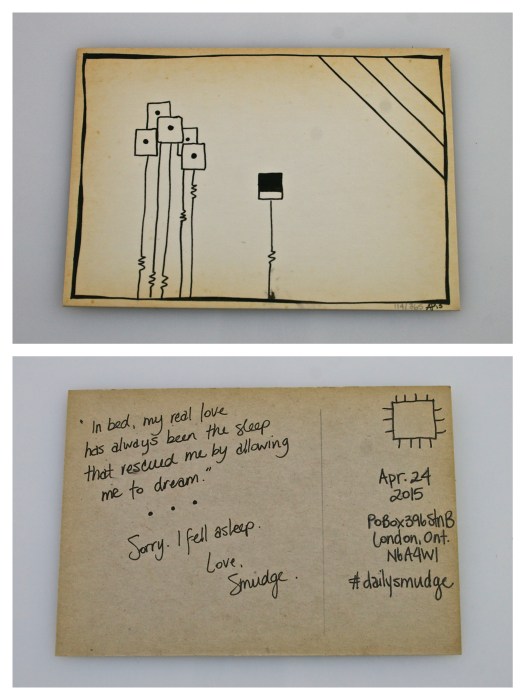 "In bed, my real love
has always been the sleep
that rescued me by allowing
me to dream."
Sorry. I fell asleep.
Love,
Smudge.
Apr. 24
2015
PoBox 396 Stn B
London, Ont.
N6A4W1
#dailysmudge